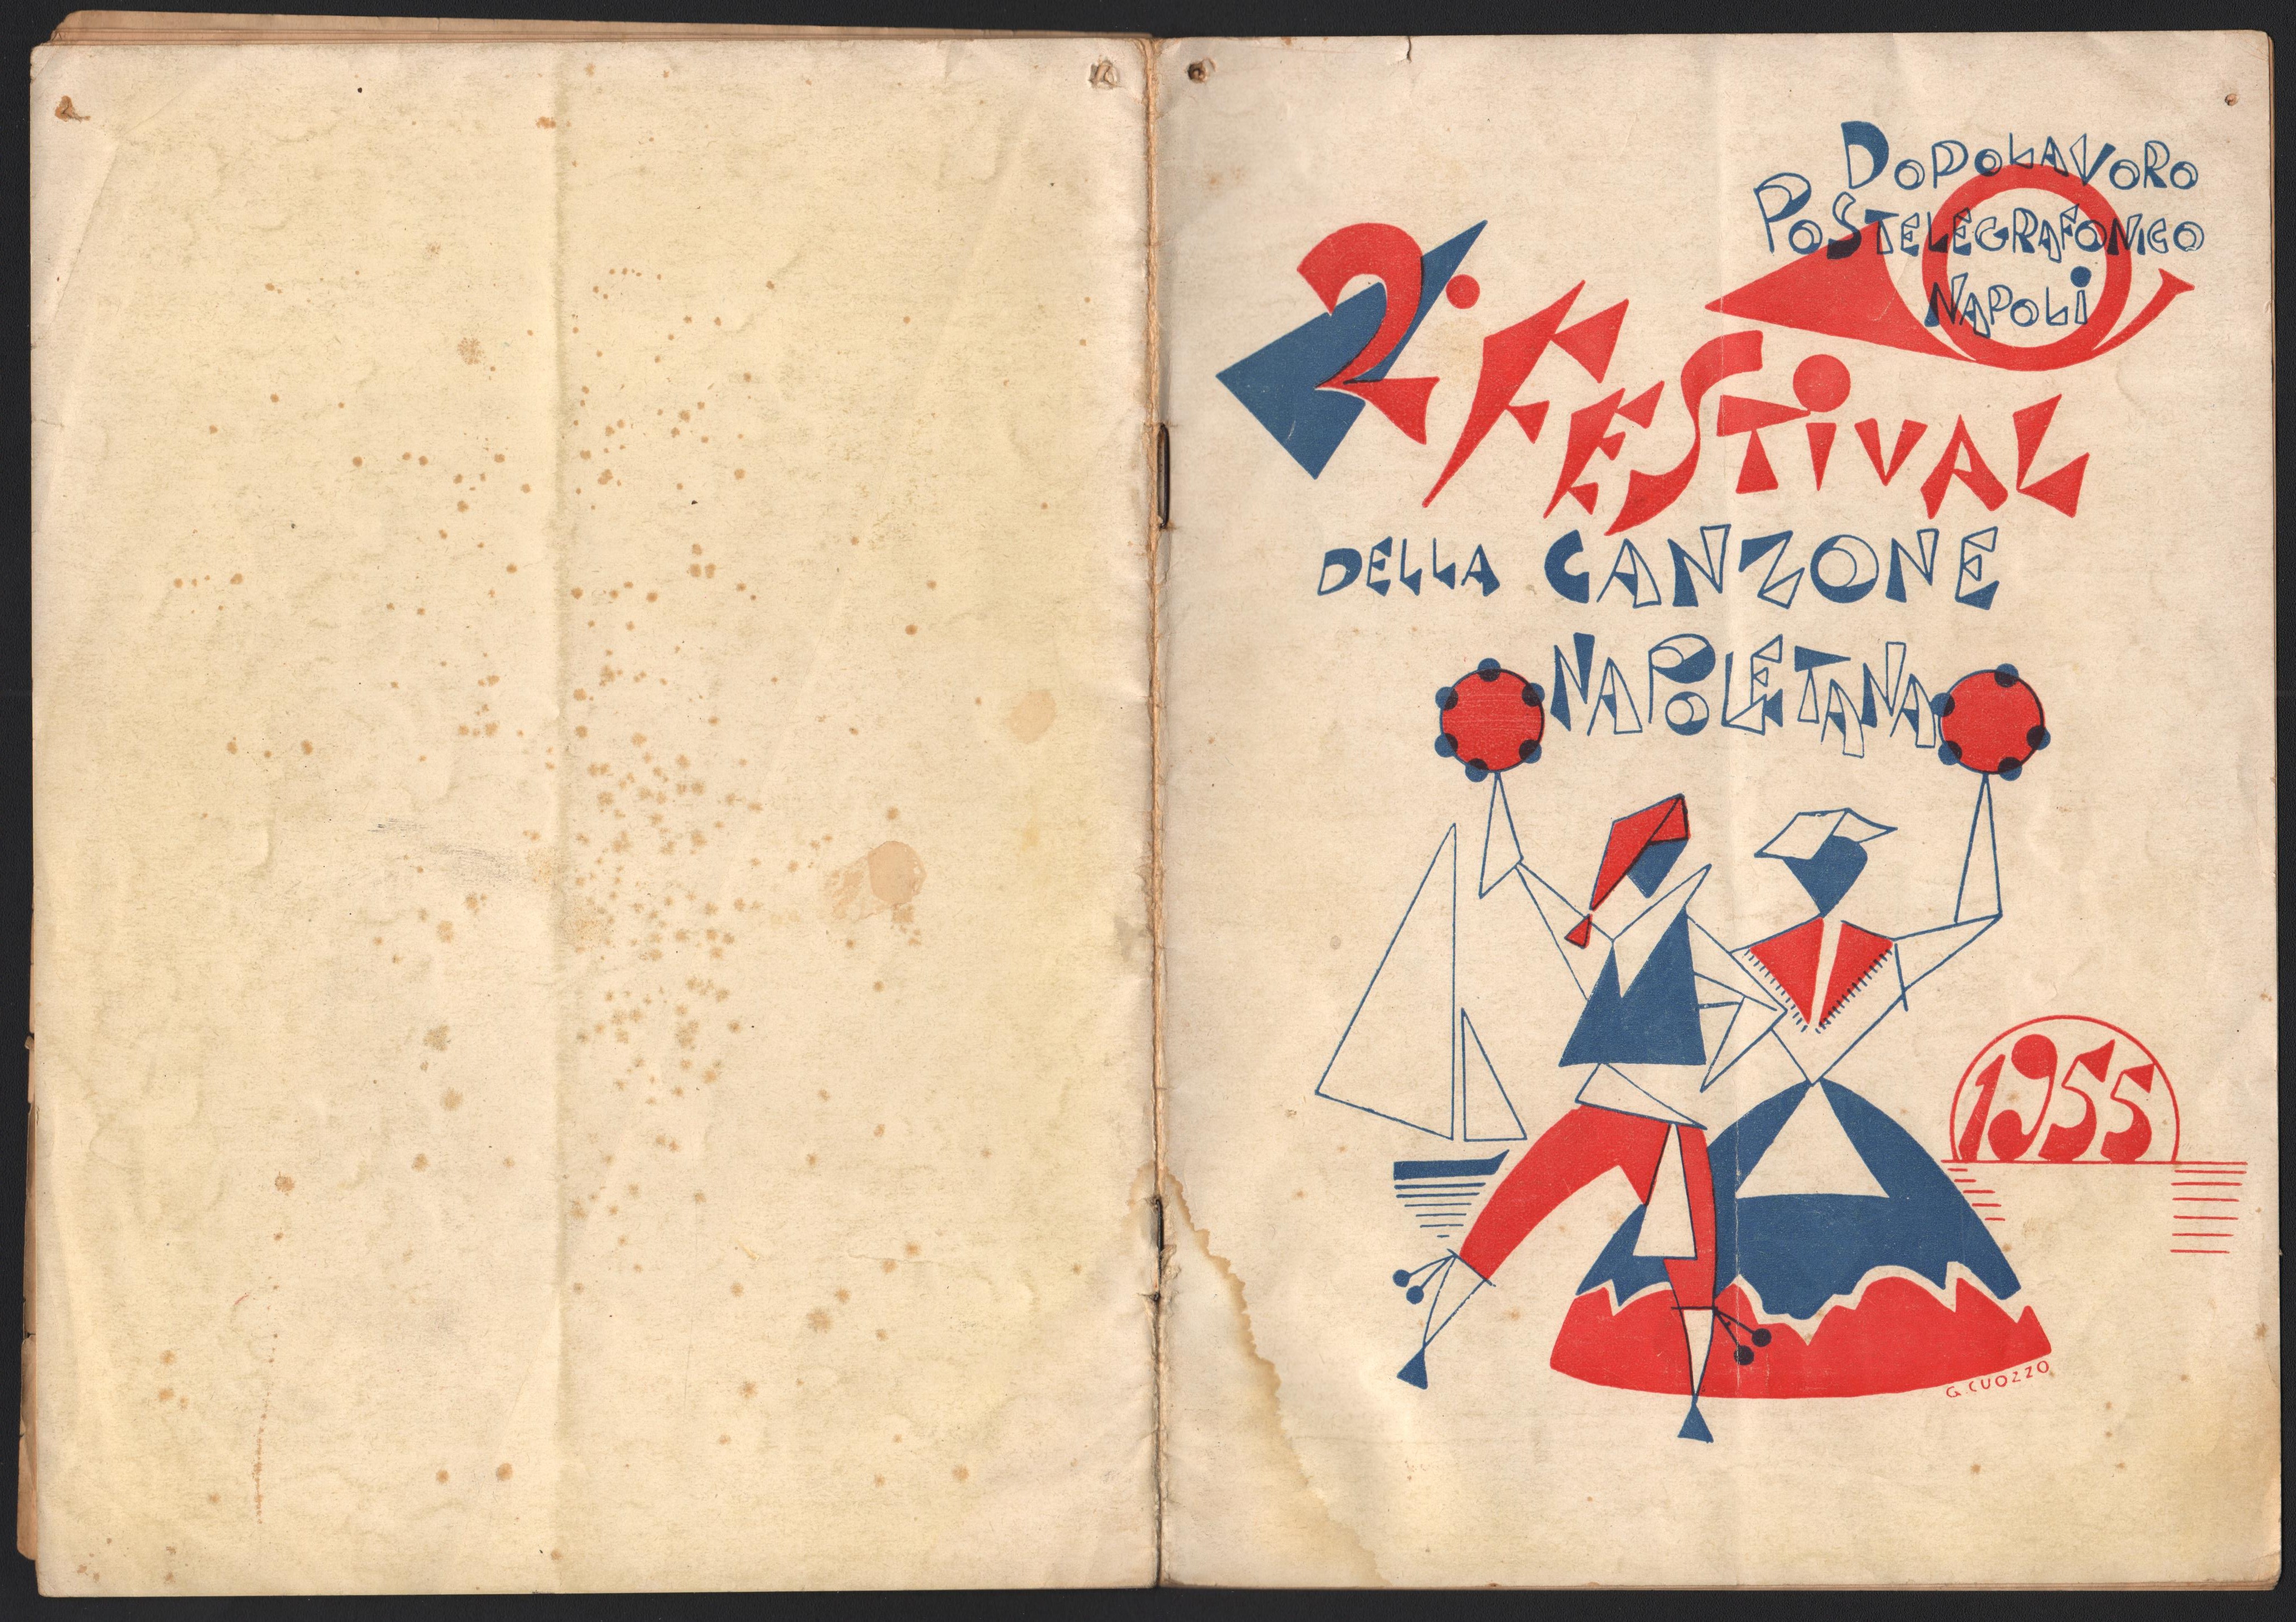 DOPOLAVORO
POSTELEGRAFONICO
NAPOLI
2° FESTIVAL
DELLA CANZONE
NAPOLETANA
1955
G. CUOZZO